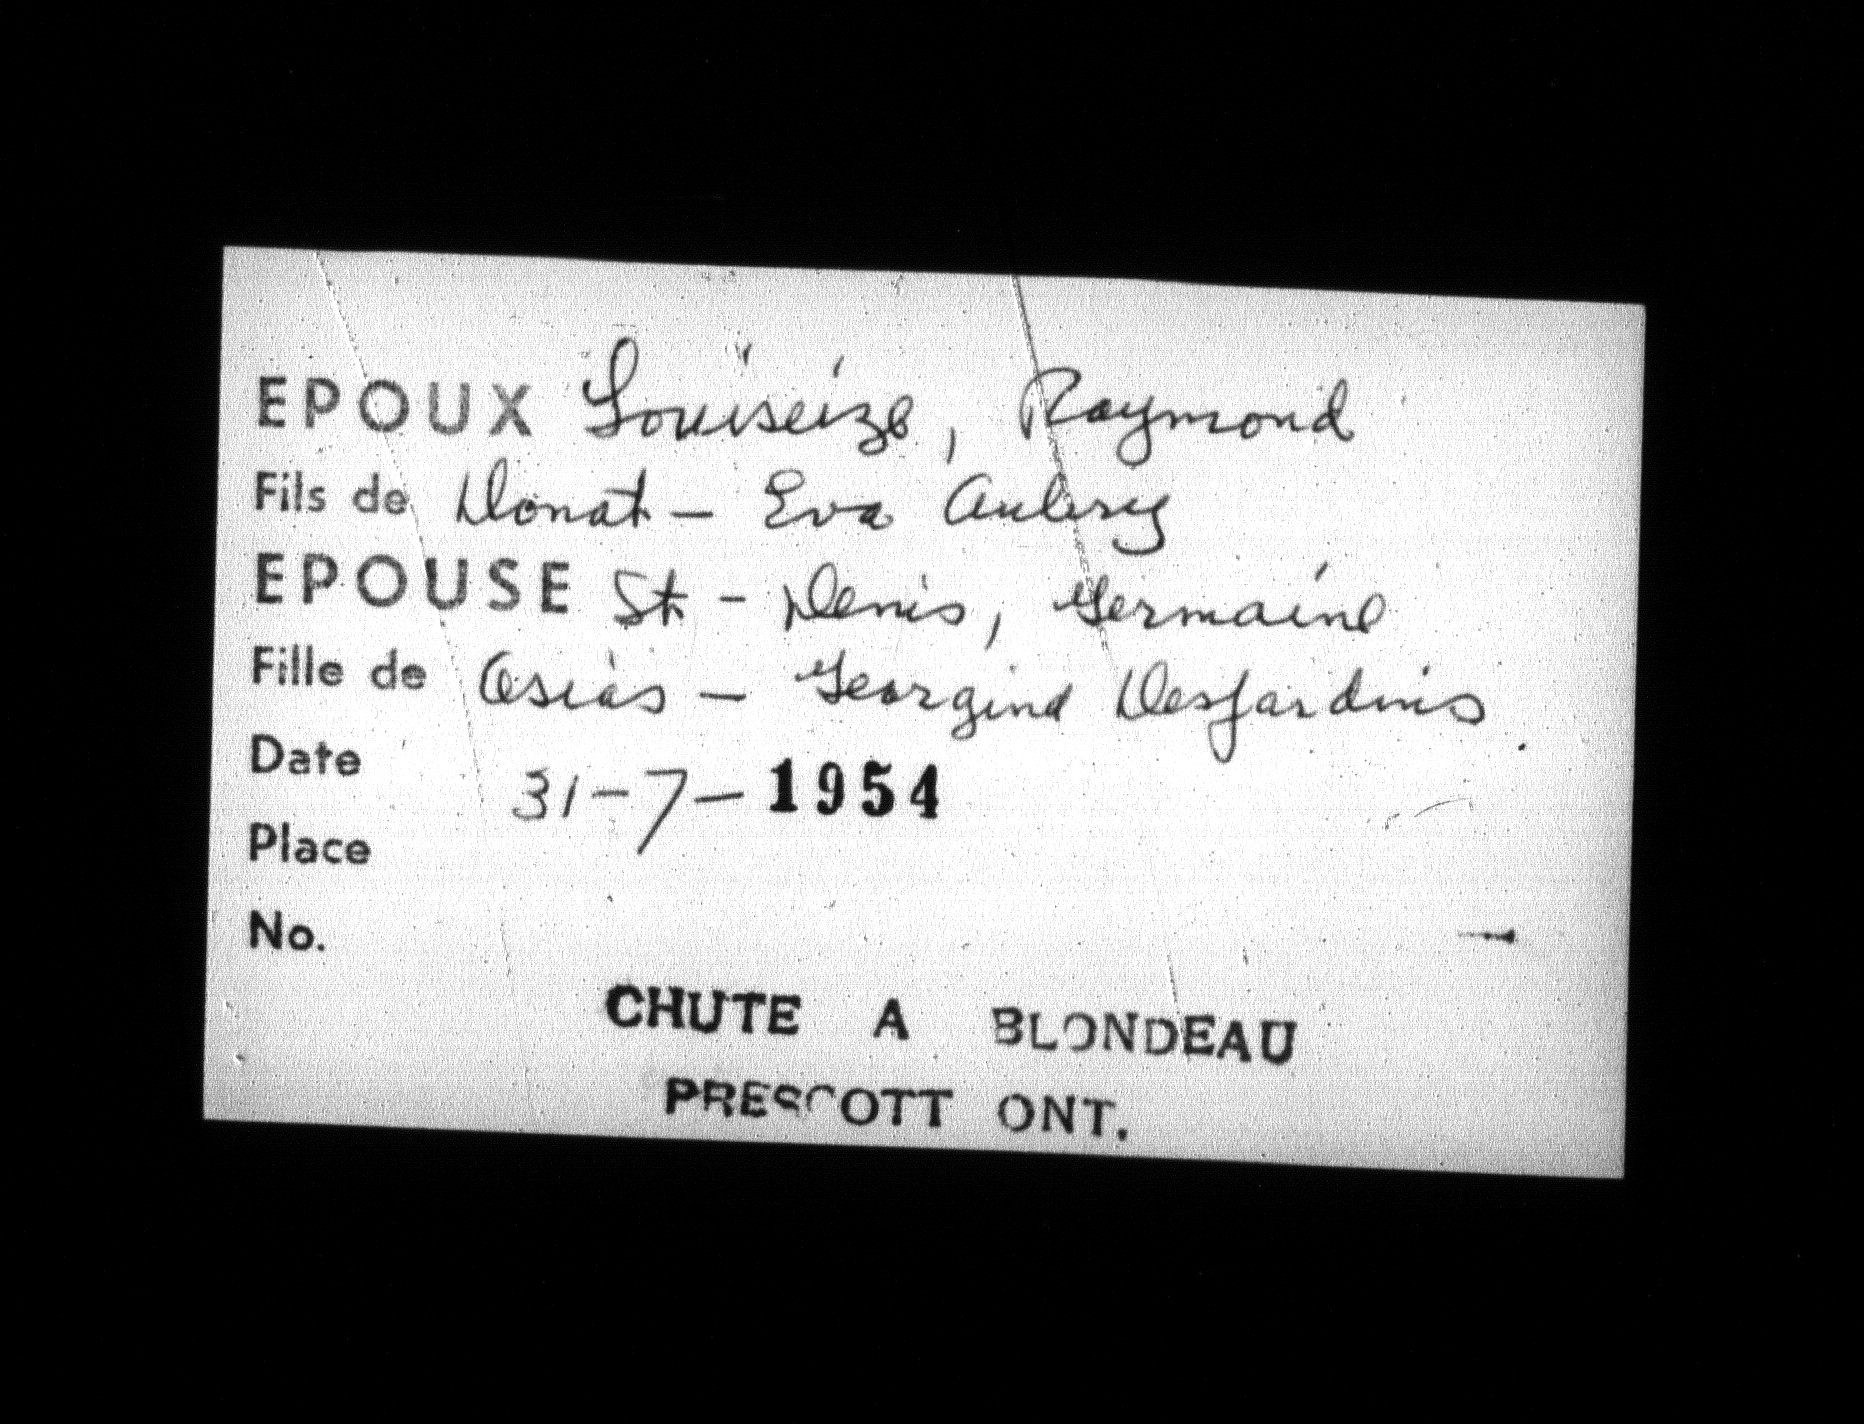 EPOUX Louiseize, Raymond
Fils de Donat – Eva Aubry
EPOUSE St - Denis, Germaine
Fille de Osias – Georgina Desjardins
Date 31-7-1954
Place
No.
CHUTE A BLONDEAU
PRESCOTT ONT.